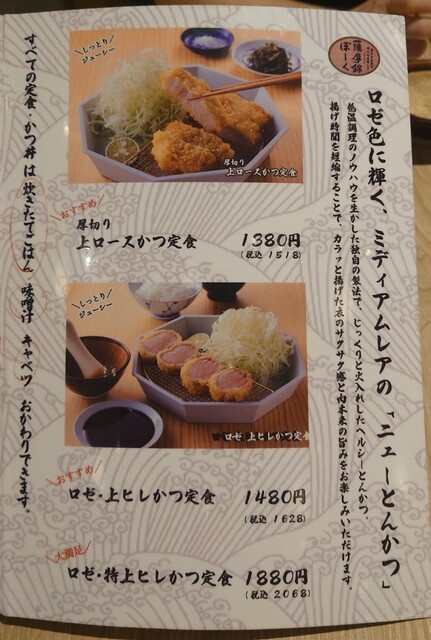 薩摩錦
ぽーく
ロゼ色に輝く、ミディアムレアの「ニューとんかつ」
低温調理のノウハウを生かした独自の製法で、じっくりと火入れしたヘルシーとんかつ。
揚げ時間を短縮することで、カラッと揚げた衣のサクサク感と肉本来の旨みをお楽しみいただけます。
しっとり
ジューシー
厚切り
上ロースかつ定食
おすすめ
厚切り
上ロースかつ定食 1380円
(税込 1518)
しっとり
ジューシー
ロゼ・上ヒレかつ定食
おすすめ
ロゼ・上ヒレかつ定食 1480円
(税込 1628)
大満足
ロゼ・特上ヒレかつ定食 1880円
(税込 2068)
すべての定食・かつ丼は炊きたてごはん 味噌汁 キャベツ おかわりできます。